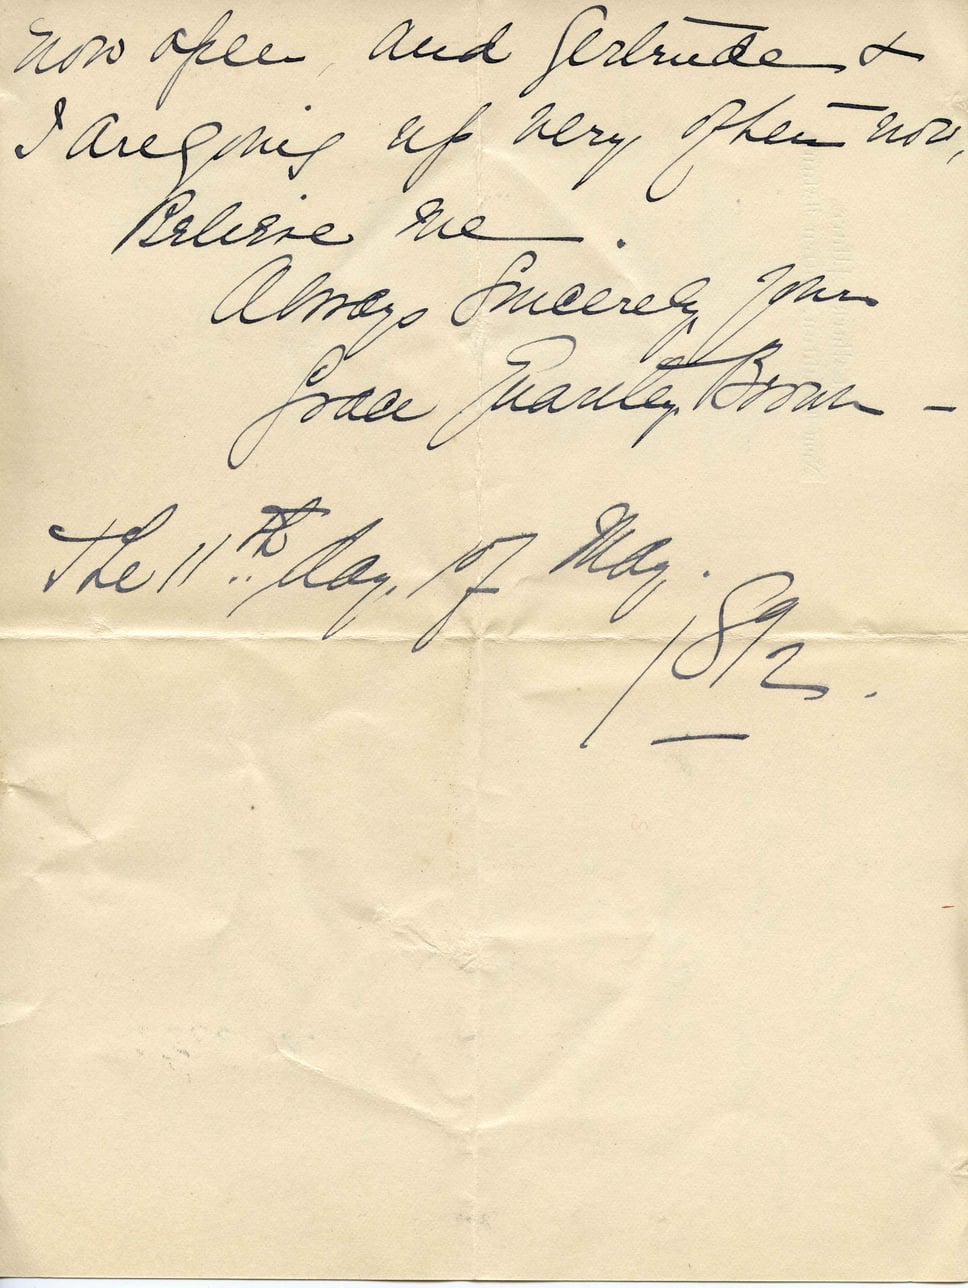 now open, and Gertrude &
I are going up very often now,
Believe me.
Always Sincerely Yours
Grace Brown –
The 11th day, of May.
1892.